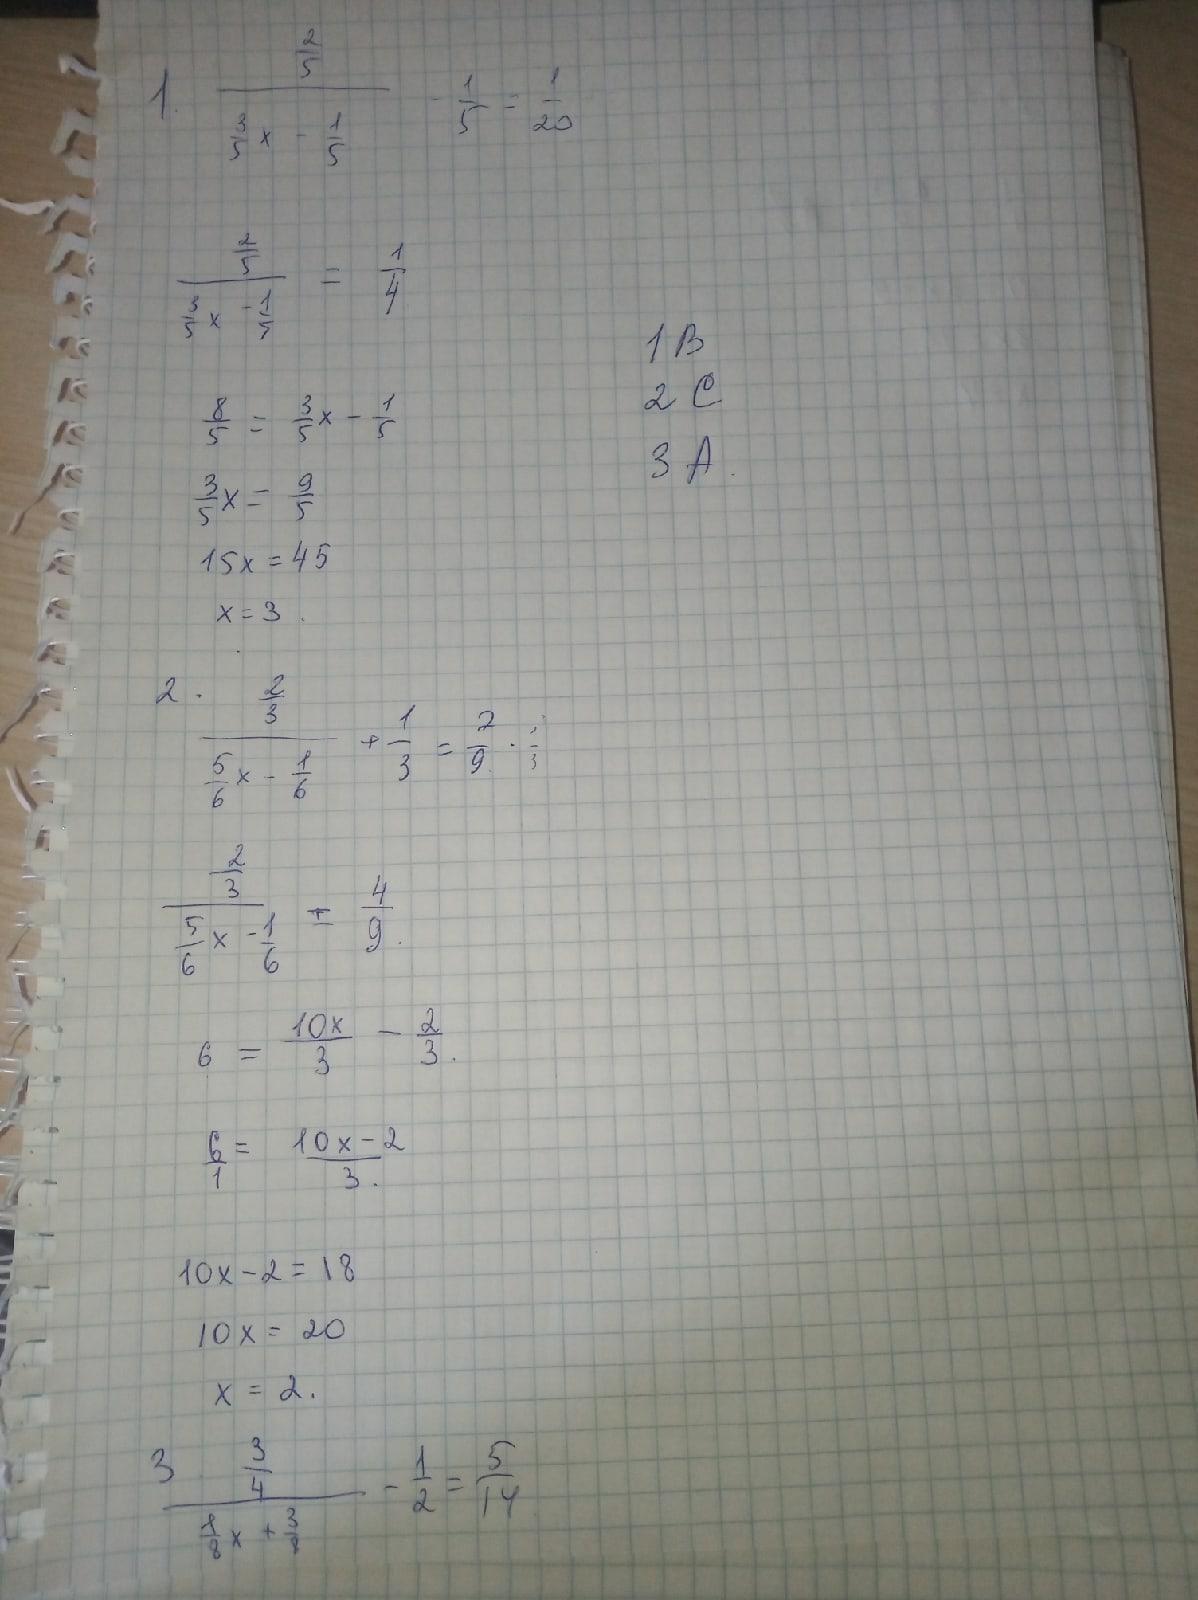 1. (2/5)/(3/5 x - 1/5) - 1/5 = 1/20
(2/5)/(3/5 x - 1/5) = 1/4
8/5 = 3/5 x - 1/5
3/5 x = 9/5
15x = 45
x = 3.
1 B
2 C
3 A.
2. (2/3)/(5/6 x - 1/6) + 1/3 = 7/9
(2/3)/(5/6 x - 1/6) = 4/9.
6 = 10x/3 - 2/3.
6/1 = (10x - 2)/3.
10x - 2 = 18
10x = 20
x = 2.
3 (3/4)/(1/8 x + 3/8) - 1/2 = 5/14